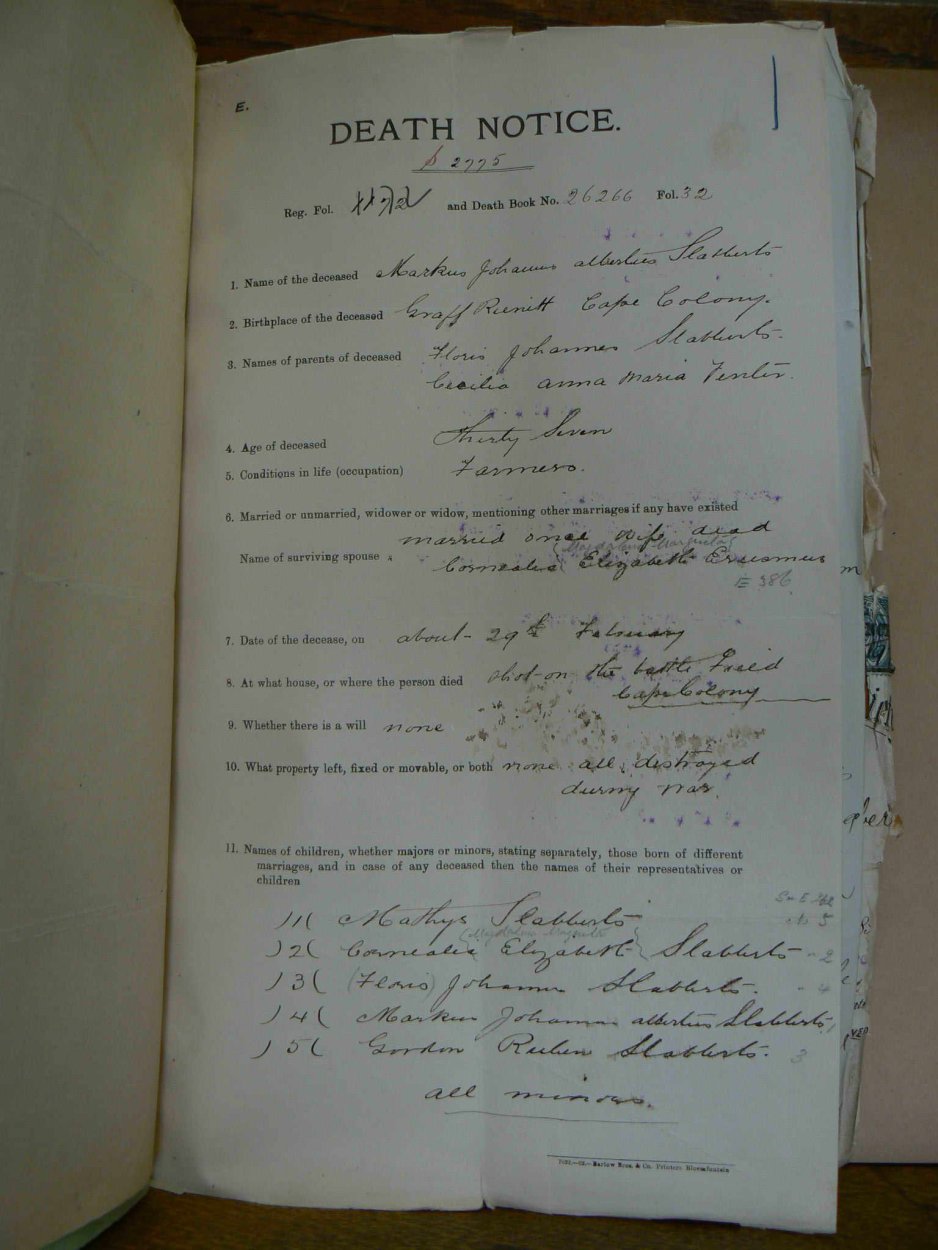 E.
DEATH NOTICE.
S 2775
Reg. Fol. and Death Book No. 26266 Fol. 32
1. Name of the deceased Markus Johannes albertus Slabberts
2. Birthplace of the deceased Graff Rienett Cape Colony.
3. Names of parents of deceased Floris Johannes Slabberts.
Cecilia anna Maria Venter.
4. Age of deceased Thirty Seven
5. Conditions in life (occupation) Farmers.
6. Married or unmarried, widower or widow, mentioning other marriages if any have existed
married once wife dead
Name of surviving spouse Cornealia Elizabeth Erasmus
E 386
7. Date of the decease, on about 29th February
8. At what house, or where the person died shot on the battle Field
Cape Colony
9. Whether there is a will none
10. What property left, fixed or movable, or both none all destroyed
during war.
11. Names of children, whether majors or minors, stating separately, those born of different
marriages, and in case of any deceased then the names of their representatives or
children
)1( Mathys Slabberts 5
Magdalena
)2( Cornealia Elizabeth Slabberts 2
)3( (Floris) Johannes Slabberts. 4
)4( Markus Johannes albertus Slabberts,
)5( Gordon Ruben Slabberts. 3
all minors.
Barlow Bros. & Co. Printers Bloemfontein